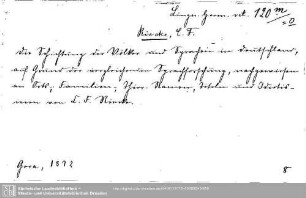 Ling. Germ. rec. 120 m
Riecke, C. F.
Die Schichtung der Völker und Sprachen in Deutschland,
auf Grund der vergleichenden Sprachforschung, nachgewiesen
an Orts-, Familien-, Thier-Namen, Titeln und Idiotis-
men von C. F. Riecke.
Gera, 1872
8
Sächsische Landesbibliothek -
Staats- und Universitätsbibliothek Dresden